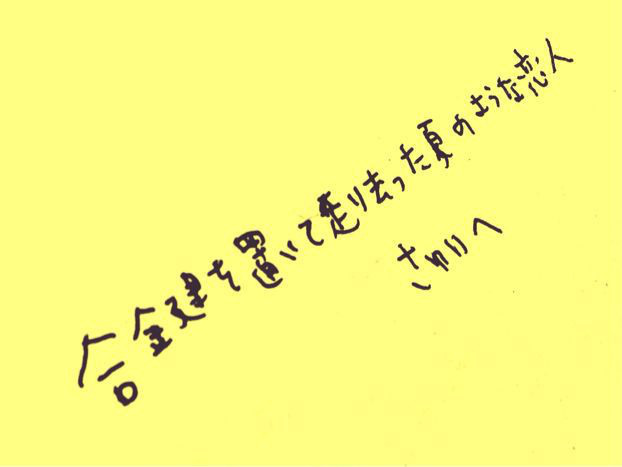 合鍵を置いて走り去った夏のような恋人
さわりへ